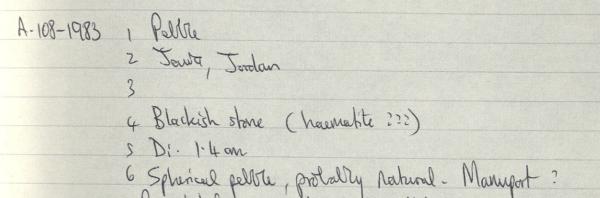 A-108-1983 1 Pebble
2 Jawa, Jordan
3
4 Blackish stone (haematite ???)
5 Di. 1.4 cm
6 Spherical pebble, probably natural. Manuport ?